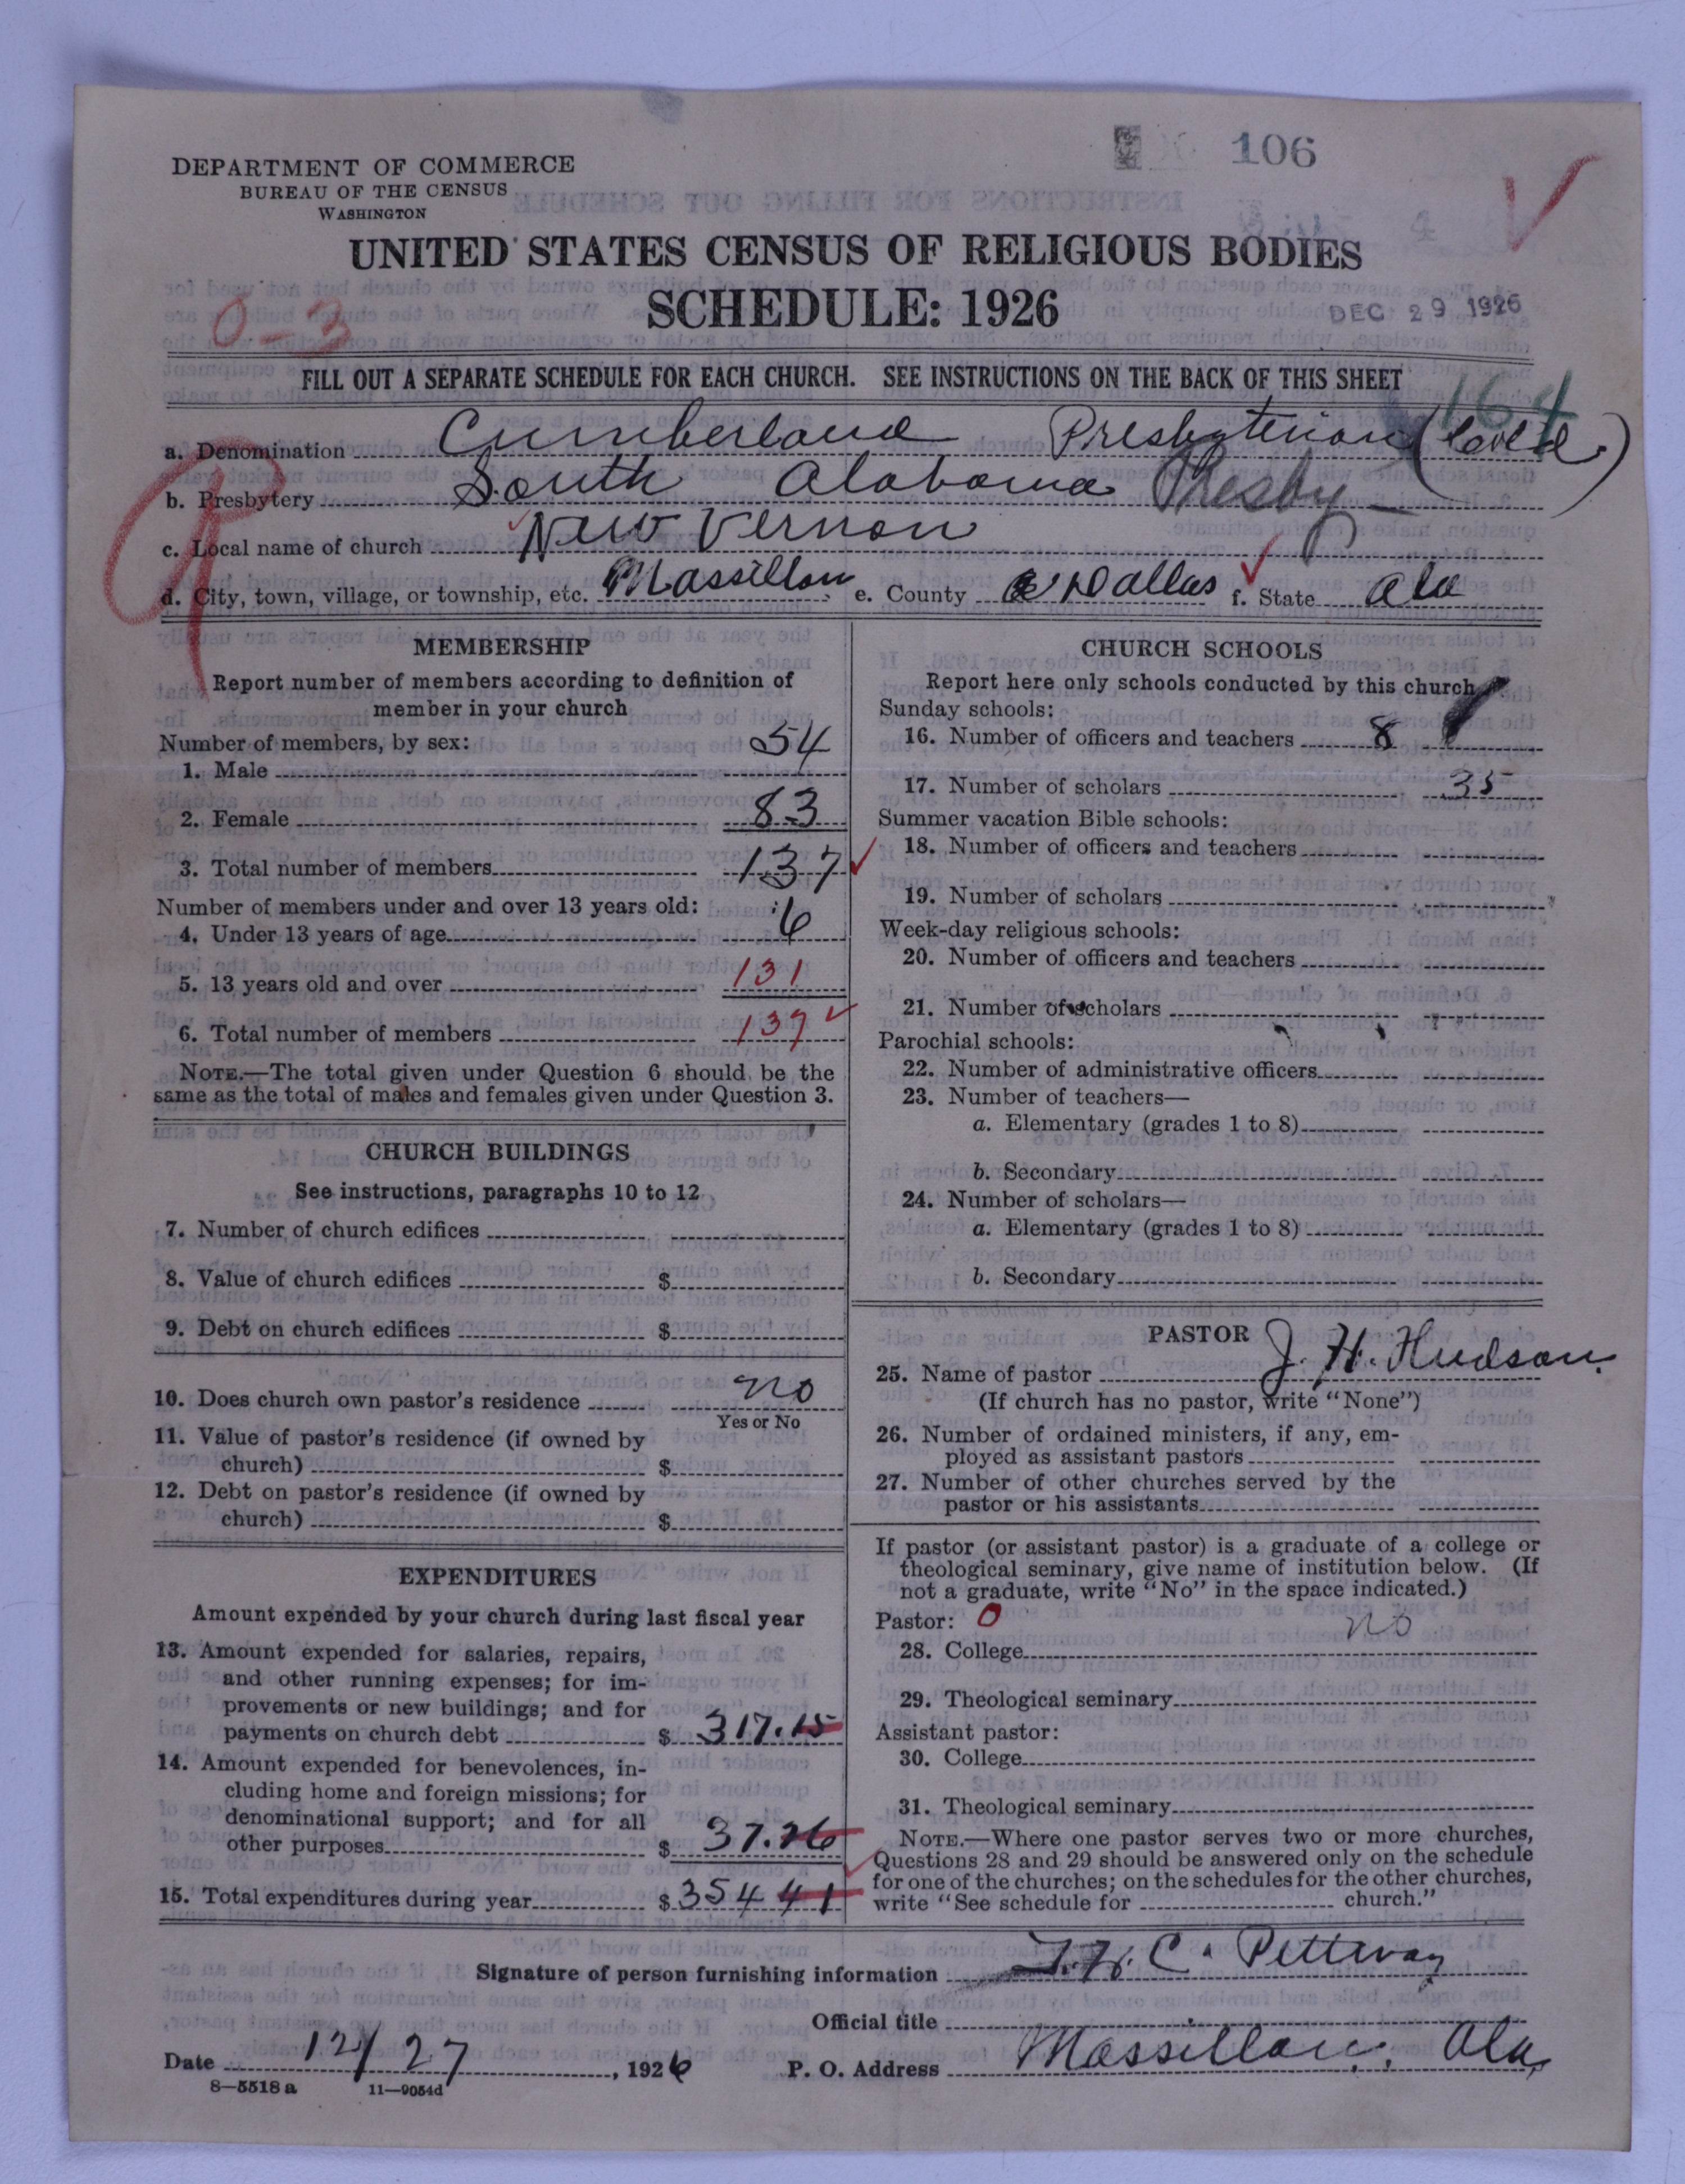 106
DEPARTMENT OF COMMERCE
BUREAU OF THE CENSUS
WASHINGTON
UNITED STATES CENSUS OF RELIGIOUS BODIES
SCHEDULE: 1926
DEC 29 1926
0-3
FILL OUT A SEPARATE SCHEDULE FOR EACH CHURCH. SEE INSTRUCTIONS ON THE BACK OF THIS SHEET
164
a. Denomination Cumberland Presbyterian (Cold.)
b. Presbytery South Alabama Presby
c. Local name of church New Vernon
d. City, town, village, or township, etc. Massillon, e. County Dallas f. State Ala
MEMBERSHIP
Report number of members according to definition of
member in your church
Number of members, by sex:
1. Male 54
2. Female 83
3. Total number of members 137
Number of members under and over 13 years old:
4. Under 13 years of age 6
5. 13 years old and over 131
6. Total number of members 137
NOTE.—The total given under Question 6 should be the
same as the total of males and females given under Question 3.
CHURCH BUILDINGS
See instructions, paragraphs 10 to 12
7. Number of church edifices
8. Value of church edifices $
9. Debt on church edifices $
10. Does church own pastor's residence no
Yes or No
11. Value of pastor's residence (if owned by
church) $
12. Debt on pastor's residence (if owned by
church) $
EXPENDITURES
Amount expended by your church during last fiscal year
13. Amount expended for salaries, repairs,
and other running expenses; for im-
provements or new buildings; and for
payments on church debt $ 317.15
14. Amount expended for benevolences, in-
cluding home and foreign missions; for
denominational support; and for all
other purposes $ 37.26
15. Total expenditures during year $ 354 41
CHURCH SCHOOLS
Report here only schools conducted by this church
Sunday schools:
16. Number of officers and teachers 8
17. Number of scholars 35
Summer vacation Bible schools:
18. Number of officers and teachers
19. Number of scholars
Week-day religious schools:
20. Number of officers and teachers
21. Number of scholars
Parochial schools:
22. Number of administrative officers
23. Number of teachers—
a. Elementary (grades 1 to 8)
b. Secondary
24. Number of scholars—
a. Elementary (grades 1 to 8)
b. Secondary
PASTOR
25. Name of pastor J. H. Hudson.
(If church has no pastor, write "None")
26. Number of ordained ministers, if any, em-
ployed as assistant pastors
27. Number of other churches served by the
pastor or his assistants
If pastor (or assistant pastor) is a graduate of a college or
theological seminary, give name of institution below. (If
not a graduate, write "No" in the space indicated.)
Pastor: 0
28. College no
29. Theological seminary
Assistant pastor:
30. College
31. Theological seminary
NOTE.—Where one pastor serves two or more churches,
Questions 28 and 29 should be answered only on the schedule
for one of the churches; on the schedules for the other churches,
write "See schedule for church."
Signature of person furnishing information C. Petteway
Official title
Date 12/27, 1926 P. O. Address Massillon, Ala,
8—5518 a 11—9054d